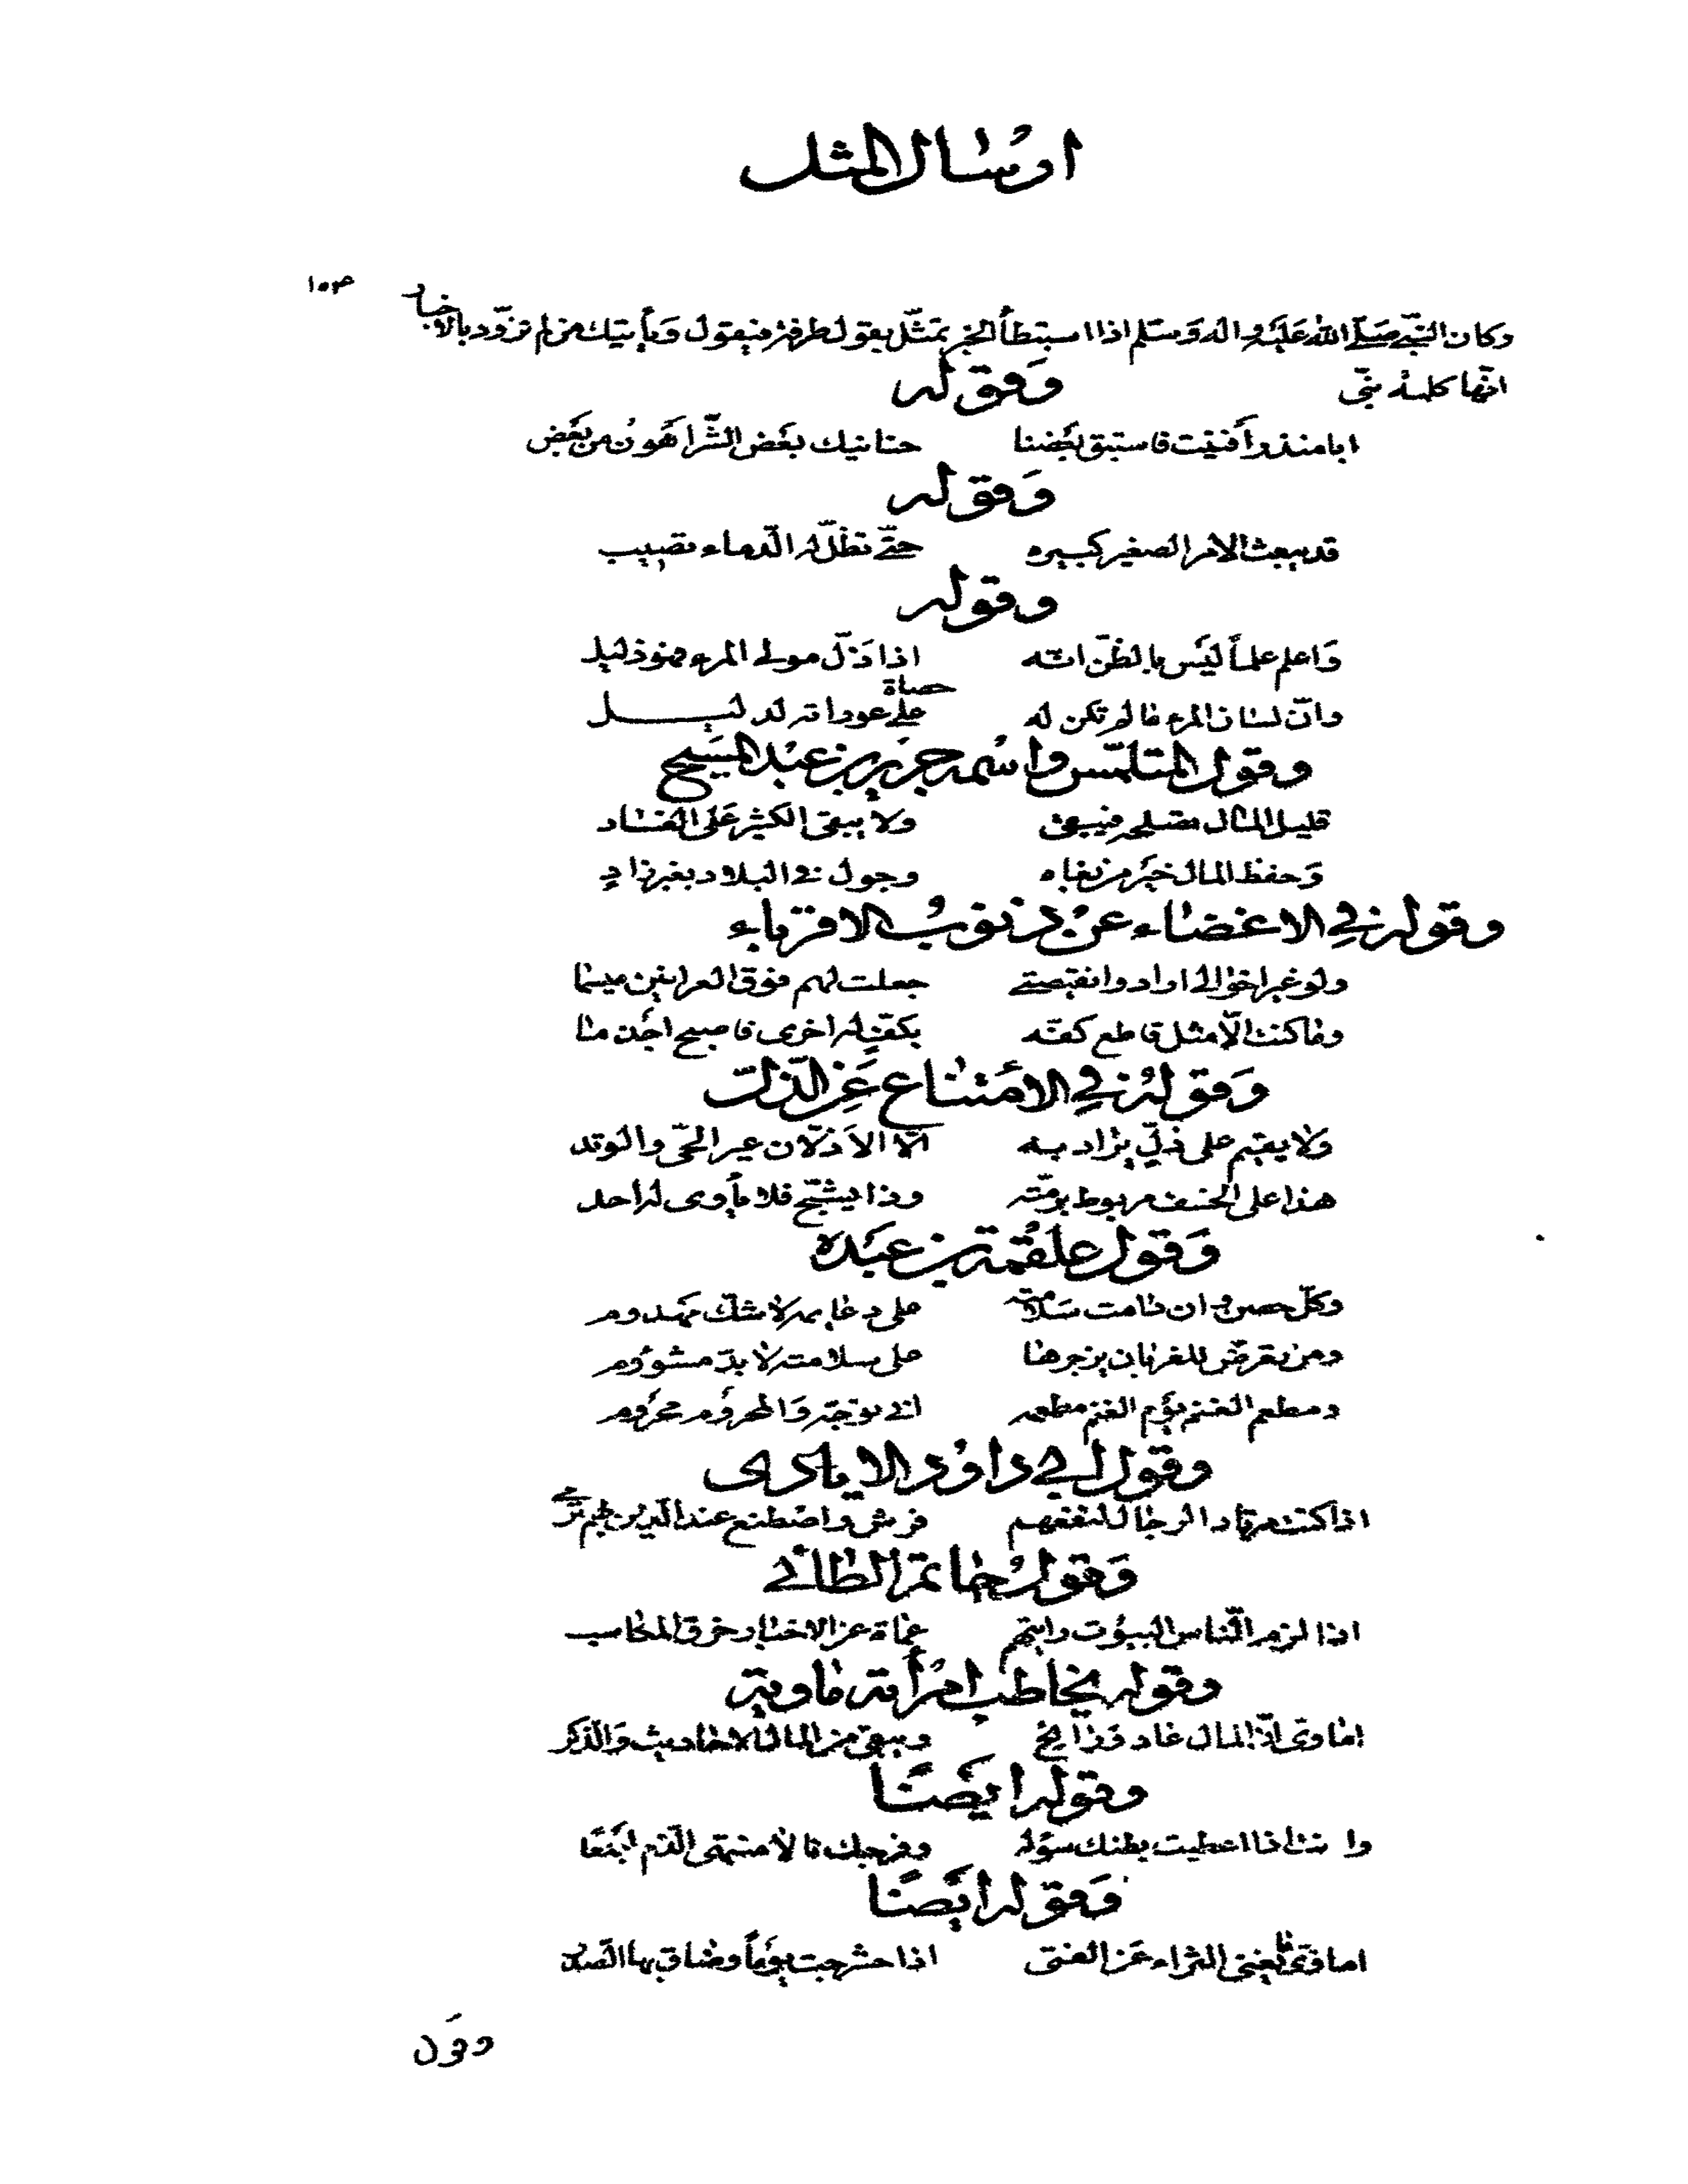 ارسال المثل
١٥٣
وكان النبي صلى الله عليه واله وسلم اذا استبطأ الخبر تمثّل بقول طرفة فيقول وياتيك من لم تزوّد بالاخبار
انّها كلمة نبي
وَقوله
ابا منذر أفنيت فاستبق بعضنا حنانيك بعَض الشّر اهَون من بعَض
وَقوله
قد يبعث الامر الصغير كبيره حتّى تظلّ له الدّماء تصبب
وقوله
وَاعلم علماً ليَس بالظنّ انّه اذا ذَلّ مولى المرء فهو ذليل
وانّ لسان المرء ما لم تكن له حصاة على عوراته لدليل
وقول المتلمّس واسُمه جرير بن عبد المسيح
قليل المال تصلحه فيبقى ولا يبقى الكثير عَلى الفساد
وَحفظ المال خيَر من بغاه وجول في البلاد بغير زادٍ
وقوله في الاغضاء عن ذنوبُ الاقرباء
ولو غير اخوالى ارادوا نقيصتى جعلت لهم فوق العرانين ميسما
وما كنت الّا مثل قاطع كفّه بكفّ له اخرى فاصبح اجذما
وَقوله في الامَتناع عَن الذّل
ولا يقيم على ذلّ يراد به الّا الاَذلّان عير الحّى والوتد
هذا على الخسف مربوط برمّته وذا يشجّ فلا يأوى له احد
وَقول علقُمة بن عبَدة
وكلّ حصن وان دامت سَلامته على دعايمه لا شكّ مهدوم
ومن تعرّض للغربان يزجرها على سلامته لا بدّ مشؤوم
ومطعم الغنم يوَم الغنم مطعمه انى توجّه وَالمحرُوم محرُوم
وقول ابى داوُد الايادى
اذا كنت مرتاد الرجال لنفعهم فرش واصَطنع عند الّذين بهم ترمى
وَقولُ حاتم الطائى
اذا لزم النّاس البيوُت رايتهم عماة عن الاخبار خرق المكاسب
وقوله يخاطب امرُأته ماوية
اماوىّ انّ المال غاد وَرايح ويبقى من المال الاحاديث وَالذّكر
وقوله ايضَا
وانت اذا اعطيت بطنك سؤله وفرجك نالا منتهى الذّم اجَمعَا
وَقوله ايضَا
اماوىّ ما يغنى الثراء عَن الفتى اذا حشرجت يوَماً وضاق بها الصّدر
وقوَل